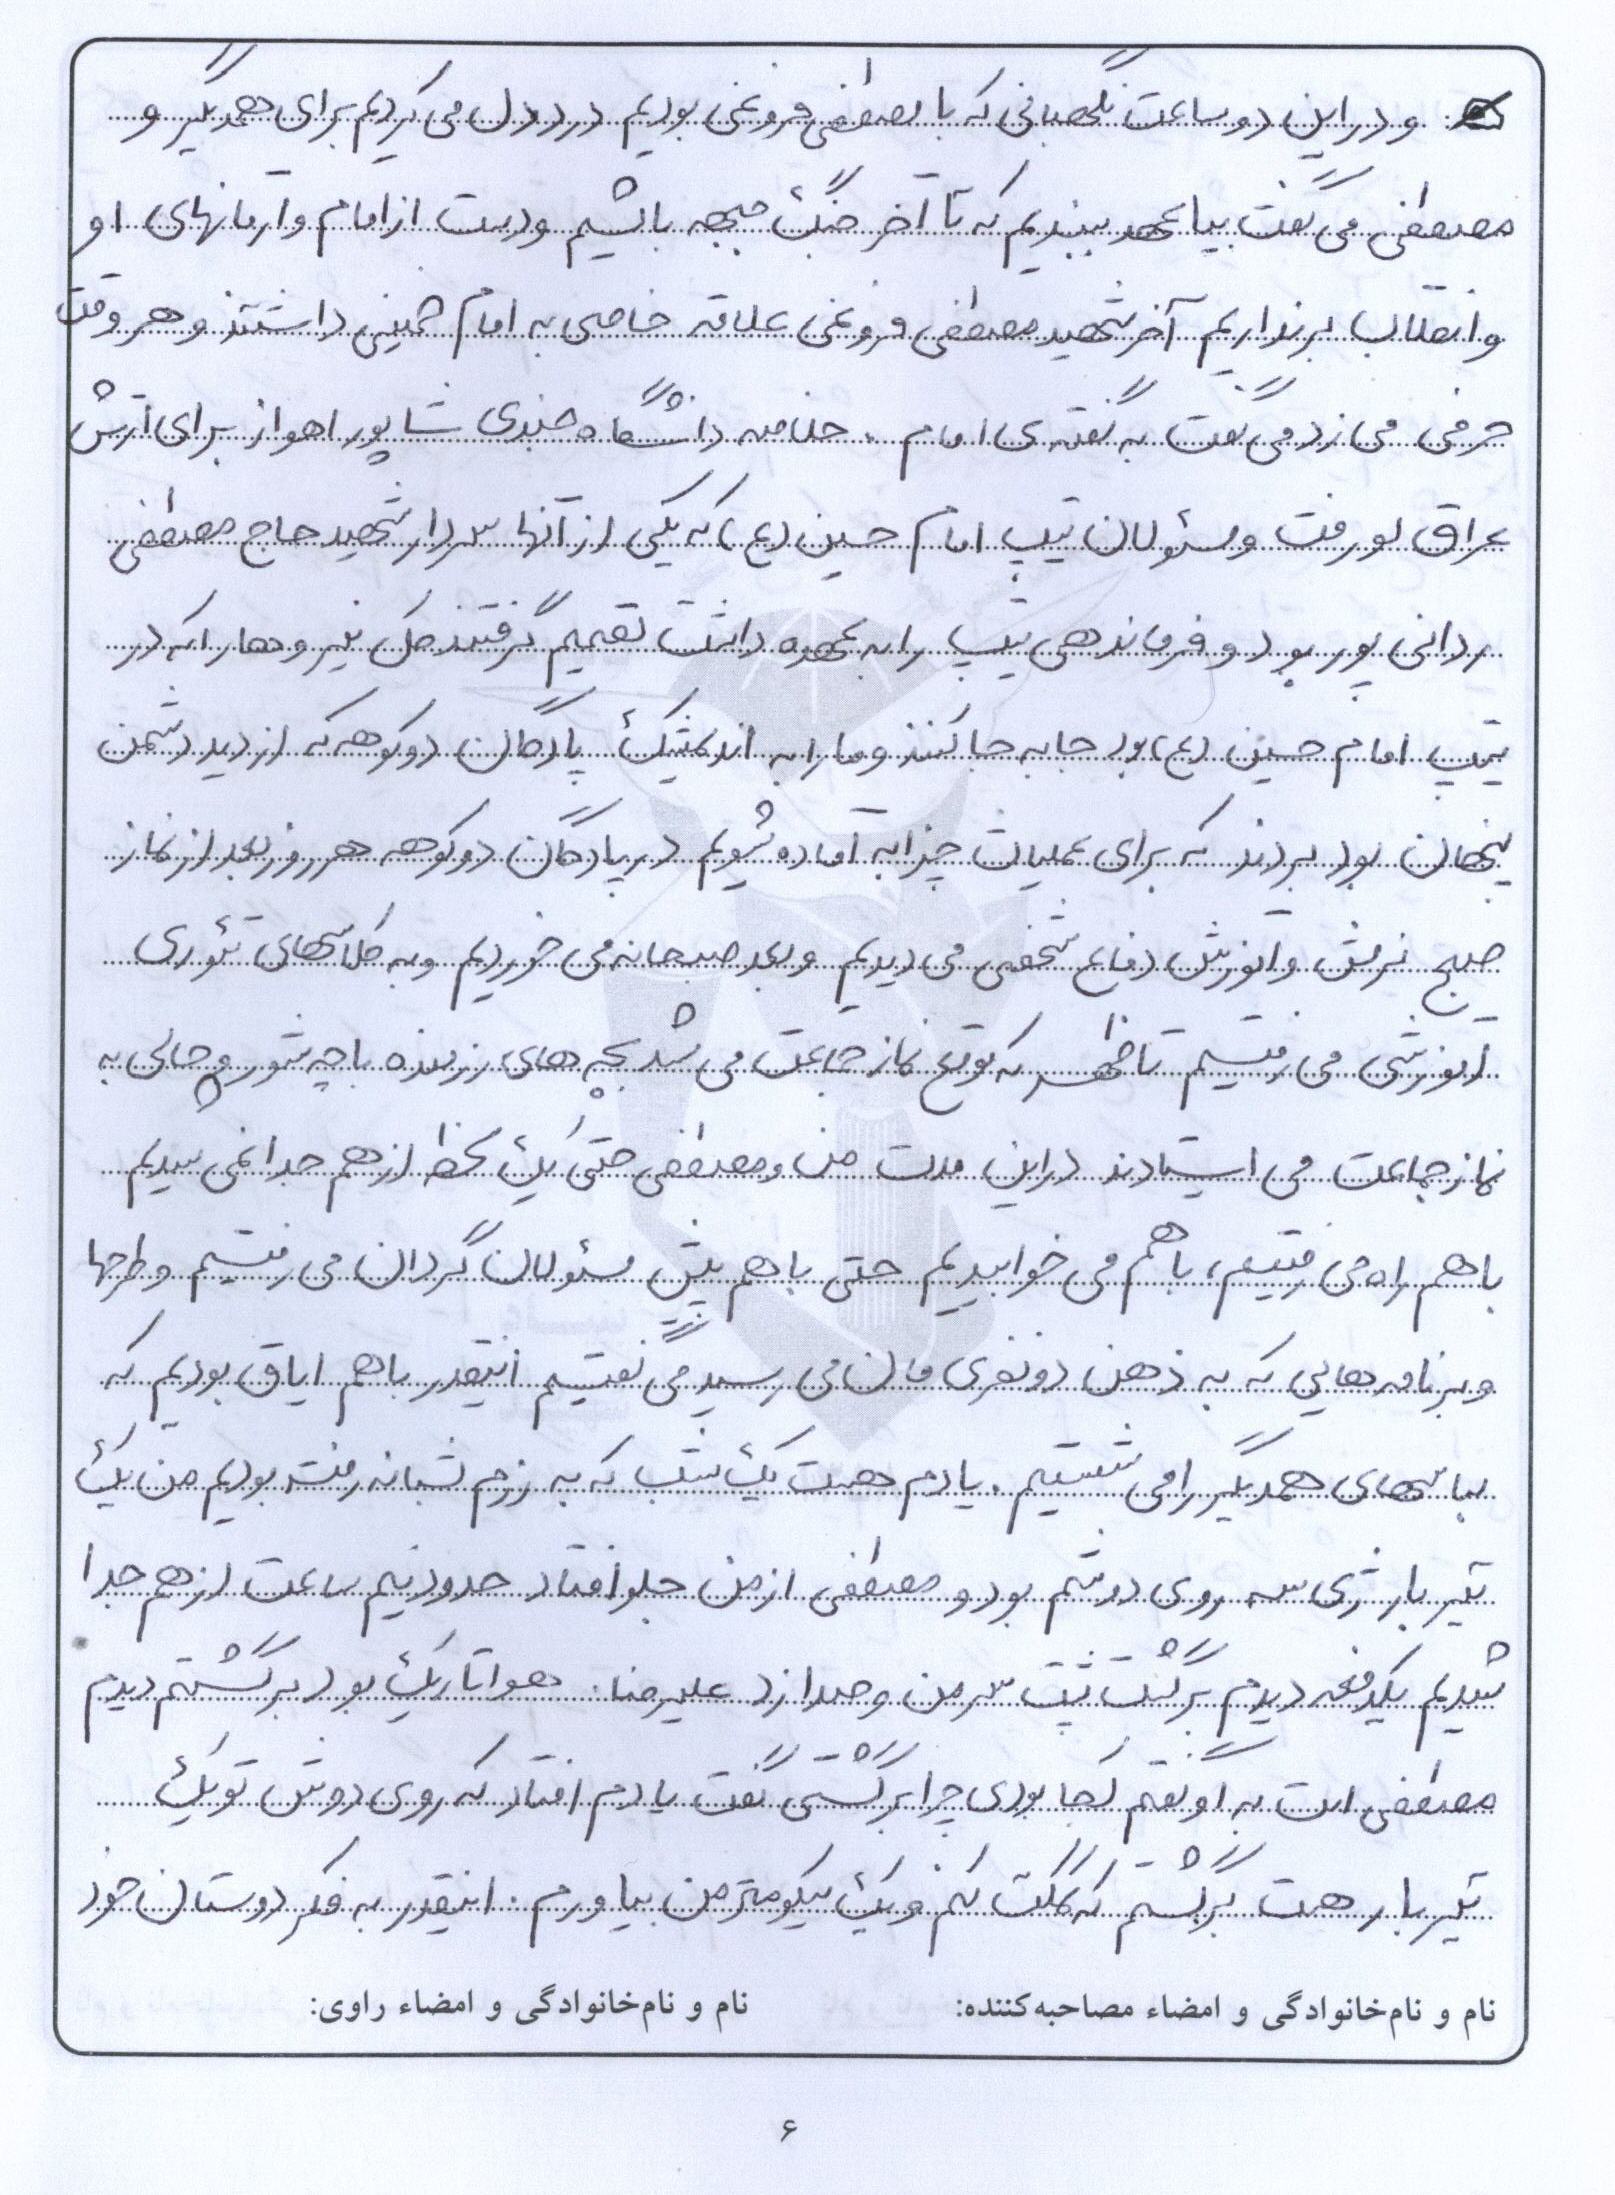 و در این دو ساعت نگهبانی که با مصطفی فروغی بودیم درد دل می کردیم برای همدیگر و
مصطفی می گفت بیا عهد ببندیم که تا آخر جنگ جبهه باشیم و دست از امام و آرمانهای او
و انقلاب برنداریم آخر شهید مصطفی فروغی علاقه خاصی به امام خمینی داشتند و هر وقت
حرفی می زد می گفت به گفته ی امام . خلاصه دانشگاه جندی شاپور اهواز برای ارتش
عراق لو رفت و مسئولان تیپ امام حسین (ع) که یکی از آنها سردار شهید حاج مصطفی
ردانی پور بود و فرماندهی تیپ را به عهده داشت تصمیم گرفتند کل نیروها را که در
تیپ امام حسین (ع) بود جابه جا کنند و ما را به اندیمشک پادگان دوکوهه که از دید دشمن
پنهان بود بردند که برای عملیات چزابه آماده شویم در پادگان دوکوهه هر روز بعد از نماز
صبح نرمش و آموزش دفاع شخصی می دیدیم و بعد صبحانه می خوردیم و به کلاسهای تئوری
آموزشی می رفتیم تا ظهر که موقع نماز جماعت می شد بچه های رزمنده با چه شور و حالی به
نماز جماعت می ایستادند در این مدت من و مصطفی حتی یک لحظه از هم جدا نمی شدیم
با هم راه می رفتیم، با هم می خوابیدیم حتی با هم پیش مسئولان گردان می رفتیم و طرحها
و برنامه هایی که به ذهن دو نفری مان می رسید می گفتیم اینقدر با هم ایاق بودیم که
لباسهای همدیگر را می شستیم . یادم هست یک شب که به رزم شبانه رفته بودیم من یک
تیر بار ژسه روی دوشم بود و مصطفی از من جلو افتاد حدود نیم ساعت از هم جدا
شدیم یکدفعه دیدم برگشت پشت سر من و صدا زد علیرضا . هوا تاریک بود برگشتم دیدم
مصطفی است به او گفتم کجا بودی چرا برگشتی گفت یادم افتاد که روی دوش تو یک
تیر بار هست برگشتم که کمکت کنم و یک کیلومتر من بیاورم . اینقدر به فکر دوستان خود
نام و نام‌خانوادگی و امضاء مصاحبه‌کننده: نام و نام‌خانوادگی و امضاء راوی:
۶